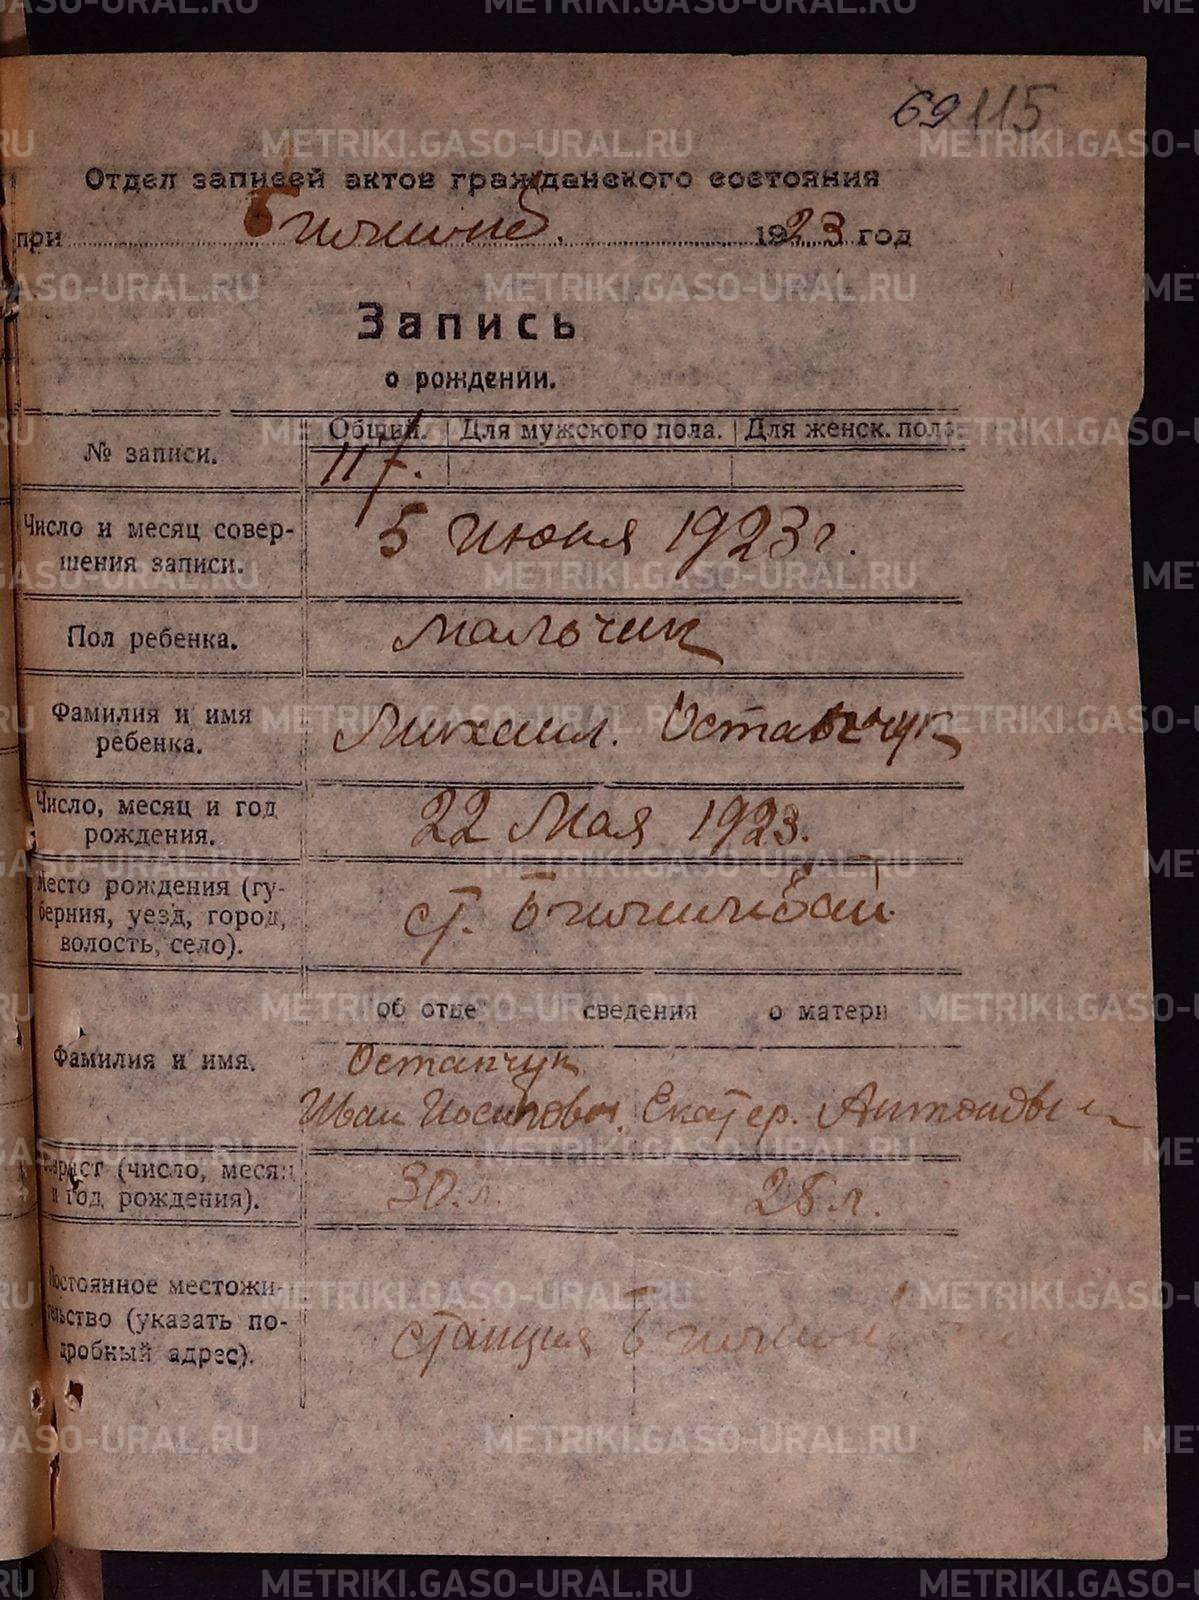 69 115
Отдел записей актов гражданского состояния
при 1923 год
Запись
о рождении.
№ записи.
Общий. Для мужского пола. Для женск. пола
117.
Число и месяц совер-
шения записи.
5 июня 1923 г.
Пол ребенка.
мальчик
Фамилия и имя
ребенка.
Михаил. Остапчук
Число, месяц и год
рождения.
22 Мая 1923.
Место рождения (гу-
берния, уезд, город,
волость, село).
ст.
об отце сведения о матери
Фамилия и имя.
Остапчук
Иван Иосипович. Екатер. Антоновн
Возраст (число, месяц
и год рождения).
30.л. 28 л.
Постоянное местожи-
тельство (указать по-
дробный адрес).
станция
METRIKI.GASO-URAL.RU